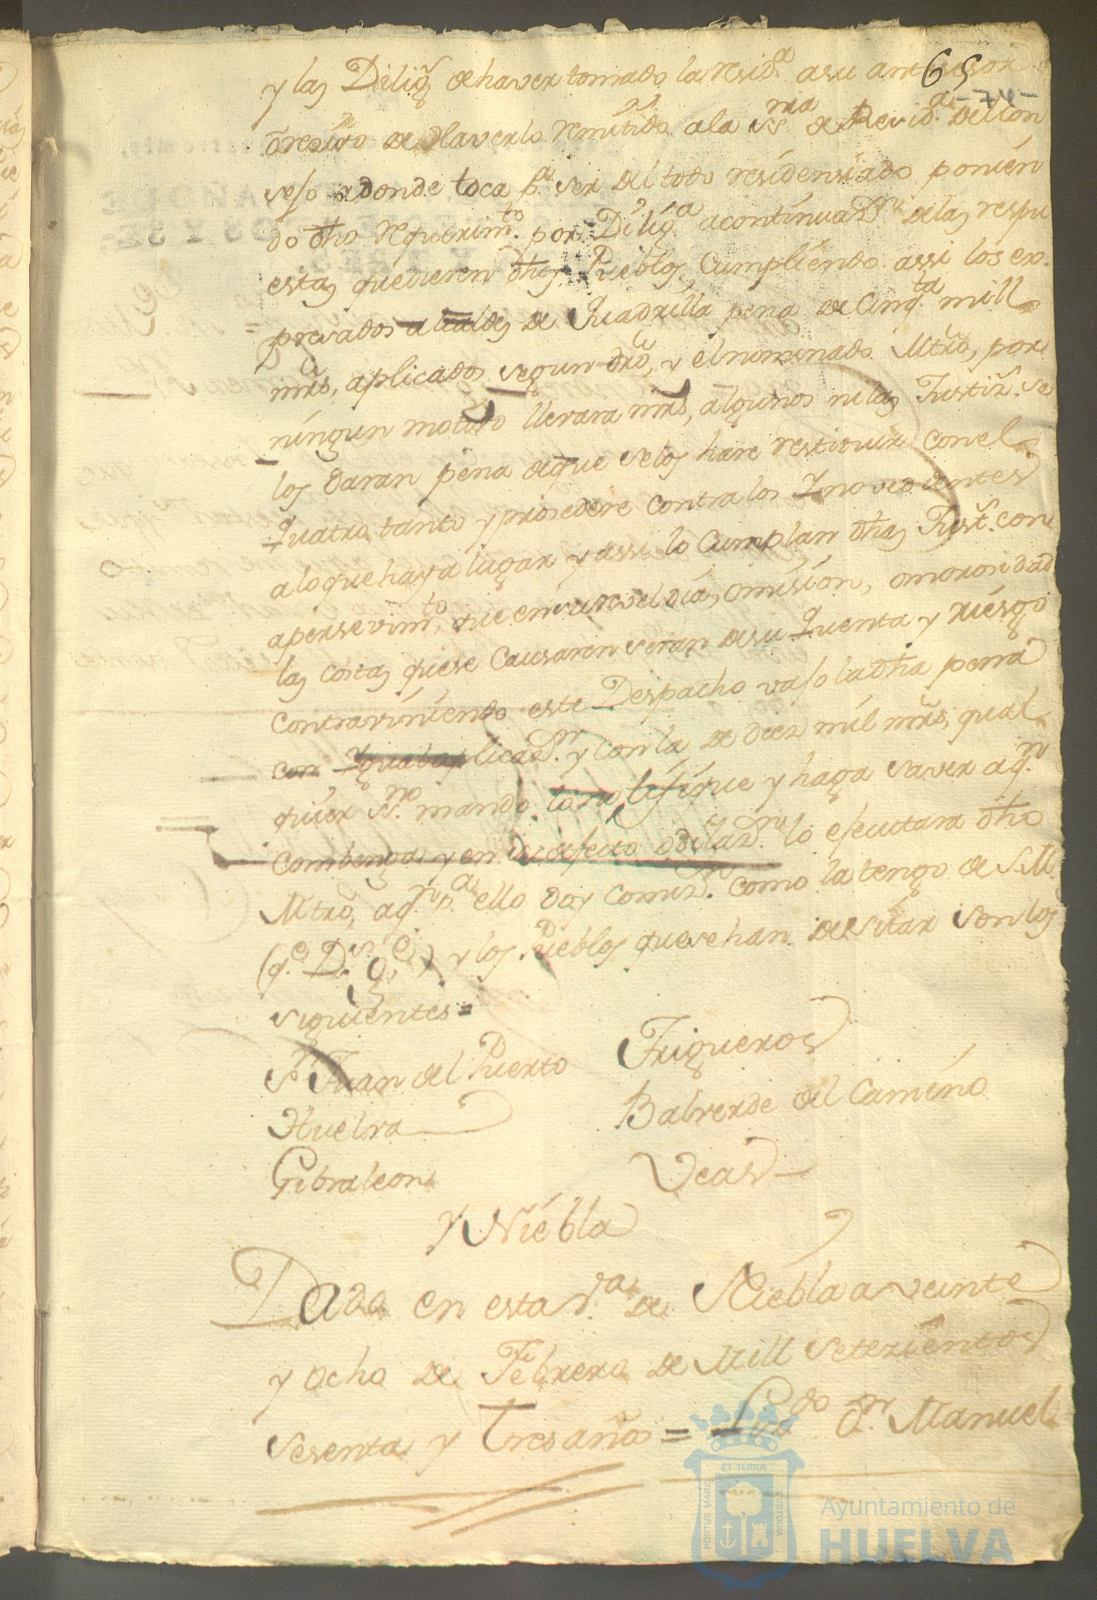 65
-74-
y las Dilig.s de haver tomado la resid.a a su antesesor
o resivo de Haverlo remitido a la ss.ria de Resid.as del Con
sejo adonde toca p.a ser del todo residensiado ponien
do dho requerim.to por Dilig.a a continuaz.n de las respu
estas que dieren dhos Pueblos, Cumpliendo assi los ex
presados alcaldes de Quadrilla pena de Cinq.ta mill
mrs, aplicados segun dro, y el nominado Mtro, por
ningun motibo llevara mrs, algunos ni las Justiz.s se
los daran pena de que se los hare restituir con el
Quatro tanto y prosedere contra los Ynovedientes
a lo que haya lugar y assi lo Cumplan dhas Just.s con
apersevim.to, que en su reveldia, omision, o morosidad
las costas que se Causaren seran de su Quenta y riesgo
contraviniendo este Despacho vajo la dha pena
con Ygual aplicaz.n y con la de diez mil mrs, qual
quier ss.no mando lo notifique y haga saver a q.n
combenga y en su defecto o dilaz.n lo ejecutara dho
Mtro, a q.n p.a ello doy comiz.n como la tengo de S.M.
(q.e D.s g.e) y los Pueblos que se han de visitar son los
siguientes=
S.n Juan del Puerto Trigueros
Huelva Balverde del Camino
Gibraleon Veas
Y Niebla
Dada en esta v.a de Niebla a veinte
y ocho de Febrero de Mill Setezientos
sesenta y Tres años = Liz.do d.n Manuel
PORTUS MARIS ET TERRÆ CUSTODIA
Ayuntamiento de
HUELVA